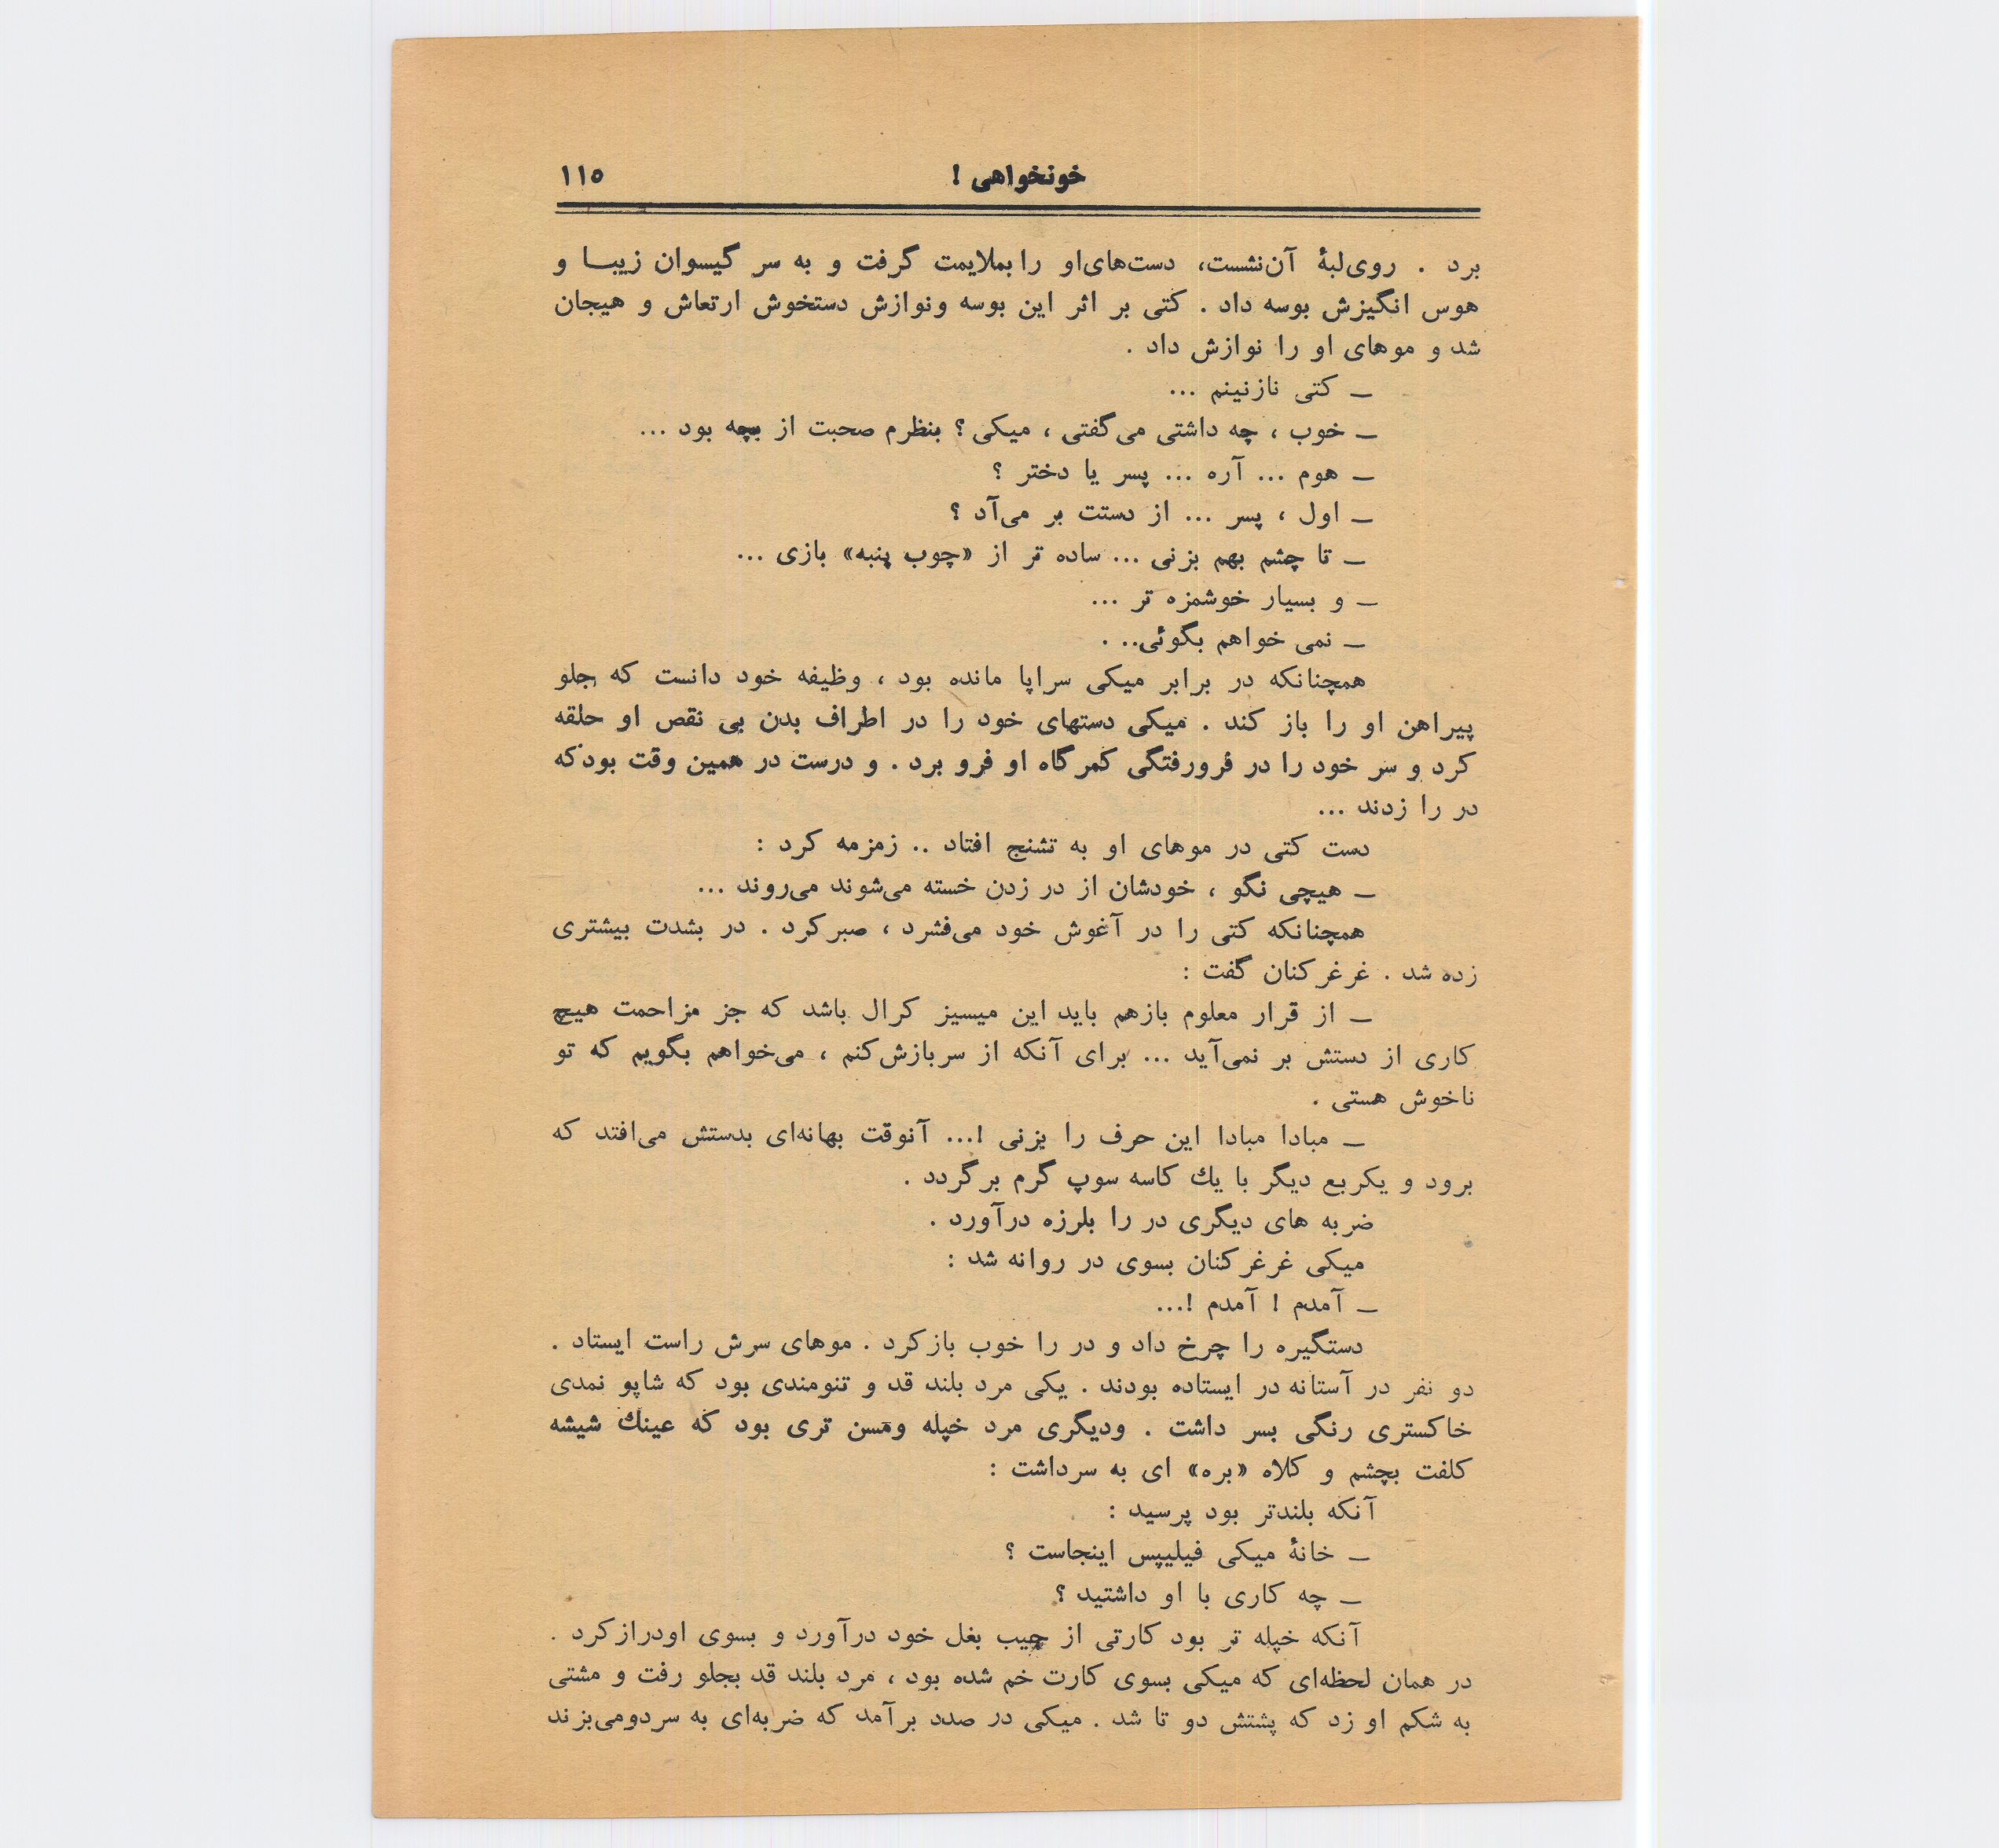 خونخواهی !
۱۱۵
برد . روی‌لبهٔ آن‌نشست، دست‌های‌او را بملایمت گرفت و به سر گیسوان زیبـا و
هوس انگیزش بوسه داد . کتی بر اثر این بوسه ونوازش دستخوش ارتعاش و هیجان
شد و موهای او را نوازش داد .
ـ کتی نازنینم ...
ـ خوب ، چه داشتی می‌گفتی ، میکی ؟ بنظرم صحبت از بچه بود ...
ـ هوم ... آره ... پسر یا دختر ؟
ـ اول ، پسر ... از دستت بر می‌آد ؟
ـ تا چشم بهم بزنی ... ساده تر از «چوب پنبه» بازی ...
ـ و بسیار خوشمزه تر ...
ـ نمی خواهم بگوئی.. .
همچنانکه در برابر میکی سراپا مانده بود ، وظیفه خود دانست که جلو
پیراهن او را باز کند . میکی دستهای خود را در اطراف بدن بی نقص او حلقه
کرد و سر خود را در فرورفتگی کمرگاه او فرو برد . و درست در همین وقت بودکه
در را زدند ...
دست کتی در موهای او به تشنج افتاد .. زمزمه کرد :
ـ هیچی نگو ، خودشان از در زدن خسته می‌شوند می‌روند ...
همچنانکه کتی را در آغوش خود می‌فشرد ، صبرکرد . در بشدت بیشتری
زده شد . غرغرکنان گفت :
ـ از قرار معلوم بازهم باید این میسیز کرال باشد که جز مزاحمت هیچ
کاری از دستش بر نمی‌آید ... برای آنکه از سربازش‌کنم ، می‌خواهم بگویم که تو
ناخوش هستی .
ـ مبادا مبادا این حرف را بزنی !... آنوقت بهانه‌ای بدستش می‌افتد که
برود و یکربع دیگر با یك کاسه سوپ گرم برگردد .
ضربه های دیگری در را بلرزه درآورد .
میکی غرغرکنان بسوی در روانه شد :
ـ آمدم ! آمدم !...
دستگیره را چرخ داد و در را خوب بازکرد . موهای سرش راست ایستاد .
دو نفر در آستانه در ایستاده بودند . یکی مرد بلند قد و تنومندی بود که شاپو نمدی
خاکستری رنگی بسر داشت . ودیگری مرد خپله ومسن تری بود که عینك شیشه
کلفت بچشم و کلاه «بره» ای به سرداشت :
آنکه بلندتر بود پرسید :
ـ خانهٔ میکی فیلیپس اینجاست ؟
ـ چه کاری با او داشتید ؟
آنکه خپله تر بود کارتی از جیب بغل خود درآورد و بسوی اودرازکرد .
در همان لحظه‌ای که میکی بسوی کارت خم شده بود ، مرد بلند قد بجلو رفت و مشتی
به شکم او زد که پشتش دو تا شد . میکی در صدد برآمد که ضربه‌ای به سردومی‌بزند